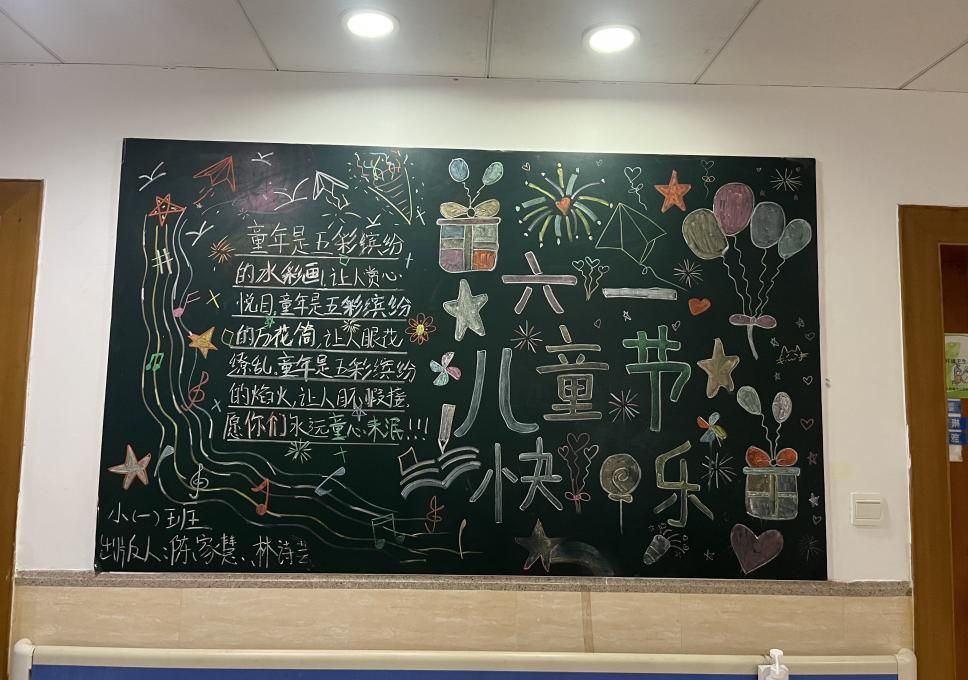 童年是五彩缤纷
的水彩画,让人赏心
悦目,童年是五彩缤纷
的万花筒,让人眼花
缭乱,童年是五彩缤纷
的焰火,让人目不暇接,
愿你们永远童心未泯!!!
小(一)班
出版人:陈家慧、林诗芸
六一
儿童节
快乐